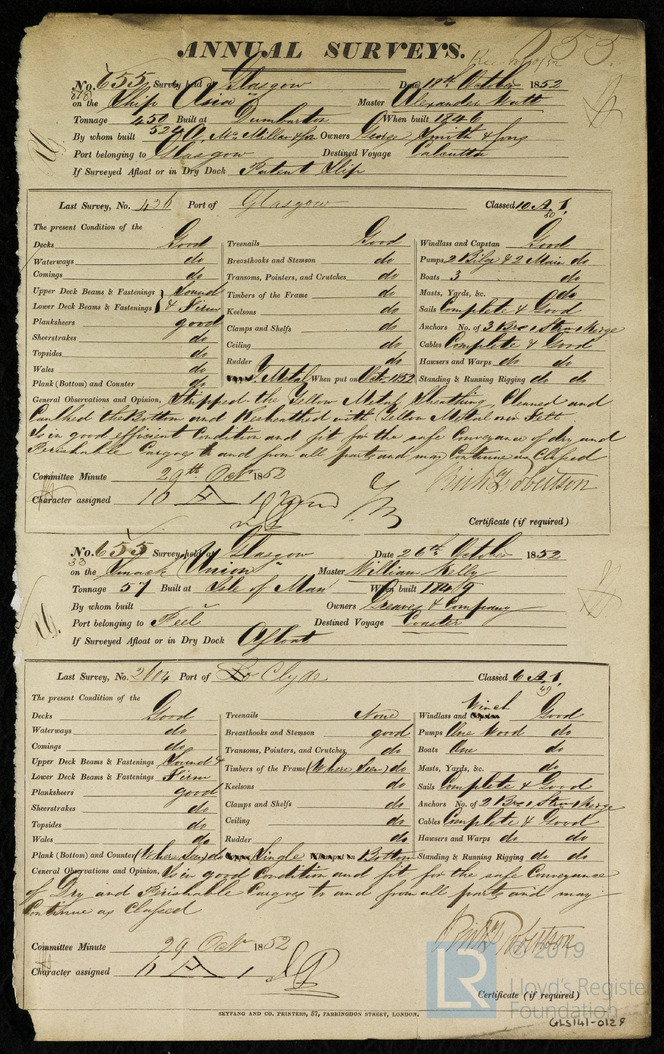 ANNUAL SURVEYS.
No. 655 Survey held at Glasgow Date 19th October 1852
on the Ship "Asia" Master Alexander Watt
Tonnage 450 Built at Dumbarton When built 1846
By whom built A. McMillan & Son Owners George Smith & Sons
Port belonging to Glasgow Destined Voyage Calcutta
If Surveyed Afloat or in Dry Dock Patent Slip
Last Survey, No. 426 Port of Glasgow Classed 10 A 1
The present Condition of the
Decks Good Treenails Good Windlass and Capstan Good
Waterways do Breasthooks and Stemson do Pumps 2 Bilge & 2 Main do
Comings do Transoms, Pointers, and Crutches do Boats 3 do
Upper Deck Beams & Fastenings Sound Timbers of the Frame do Masts, Yards, &c. do
Lower Deck Beams & Fastenings & Firm Keelsons do Sails Complete & Good
Planksheers good Clamps and Shelfs do Anchors No. of 3 Br 1 Strm & Kedge
Sheerstrakes do Ceiling do Cables Complete & Good
Topsides do Rudder do Hawsers and Warps do do
Wales do Y. Metal When put on Oct. 1852 Standing & Running Rigging do do
Plank (Bottom) and Counter do
General Observations and Opinion, Stripped the Yellow Metal Sheathing, Cleaned and
Caulked the Bottom and Resheathed with Yellow Metal over Felt
Is in good efficient Condition and fit for the safe Conveyance of dry and
Perishable Cargoes to and from all parts and may Continue as Classed
Committee Minute 29th Octr 1852
Character assigned 10 A 1
Robertson
Certificate (if required)
No. 655 Survey held at Glasgow Date 26th October 1852
on the Smack "Union" Master William Kelly
Tonnage 57 Built at Isle of Man When built 1849
By whom built " Owners Greaves & Company
Port belonging to Peel Destined Voyage Coaster
If Surveyed Afloat or in Dry Dock Afloat
Last Survey, No. 2604 Port of Clyde Classed 6 A 1
49
The present Condition of the
Decks Good Treenails None Windlass and Winch Good
Waterways do Breasthooks and Stemson good Pumps One Wood do
Comings do Transoms, Pointers, and Crutches do Boats One do
Upper Deck Beams & Fastenings Sound & Timbers of the Frame (Where Seen) do Masts, Yards, &c. do
Lower Deck Beams & Fastenings Firm Keelsons do Sails Complete & Good
Planksheers good Clamps and Shelfs do Anchors No. of 2 Br 1 Strm & Kedge
Sheerstrakes do Ceiling do Cables Complete & Good
Topsides do Rudder do Hawsers and Warps do do
Wales do Single Bottom Standing & Running Rigging do do
Plank (Bottom) and Counter (Where Seen) do
General Observations and Opinion, Is in good Condition and fit for the safe Conveyance
of Dry and Perishable Cargoes to and from all parts and may
Continue as Classed
Committee Minute 29 Octr 1852
Character assigned 6 A 1
Robertson
Certificate (if required)
SEYFANG AND CO. PRINTERS, 57, FARRINGDON STREET, LONDON.
LR © 2019
Lloyd's Register
Foundation
GLS141-0128